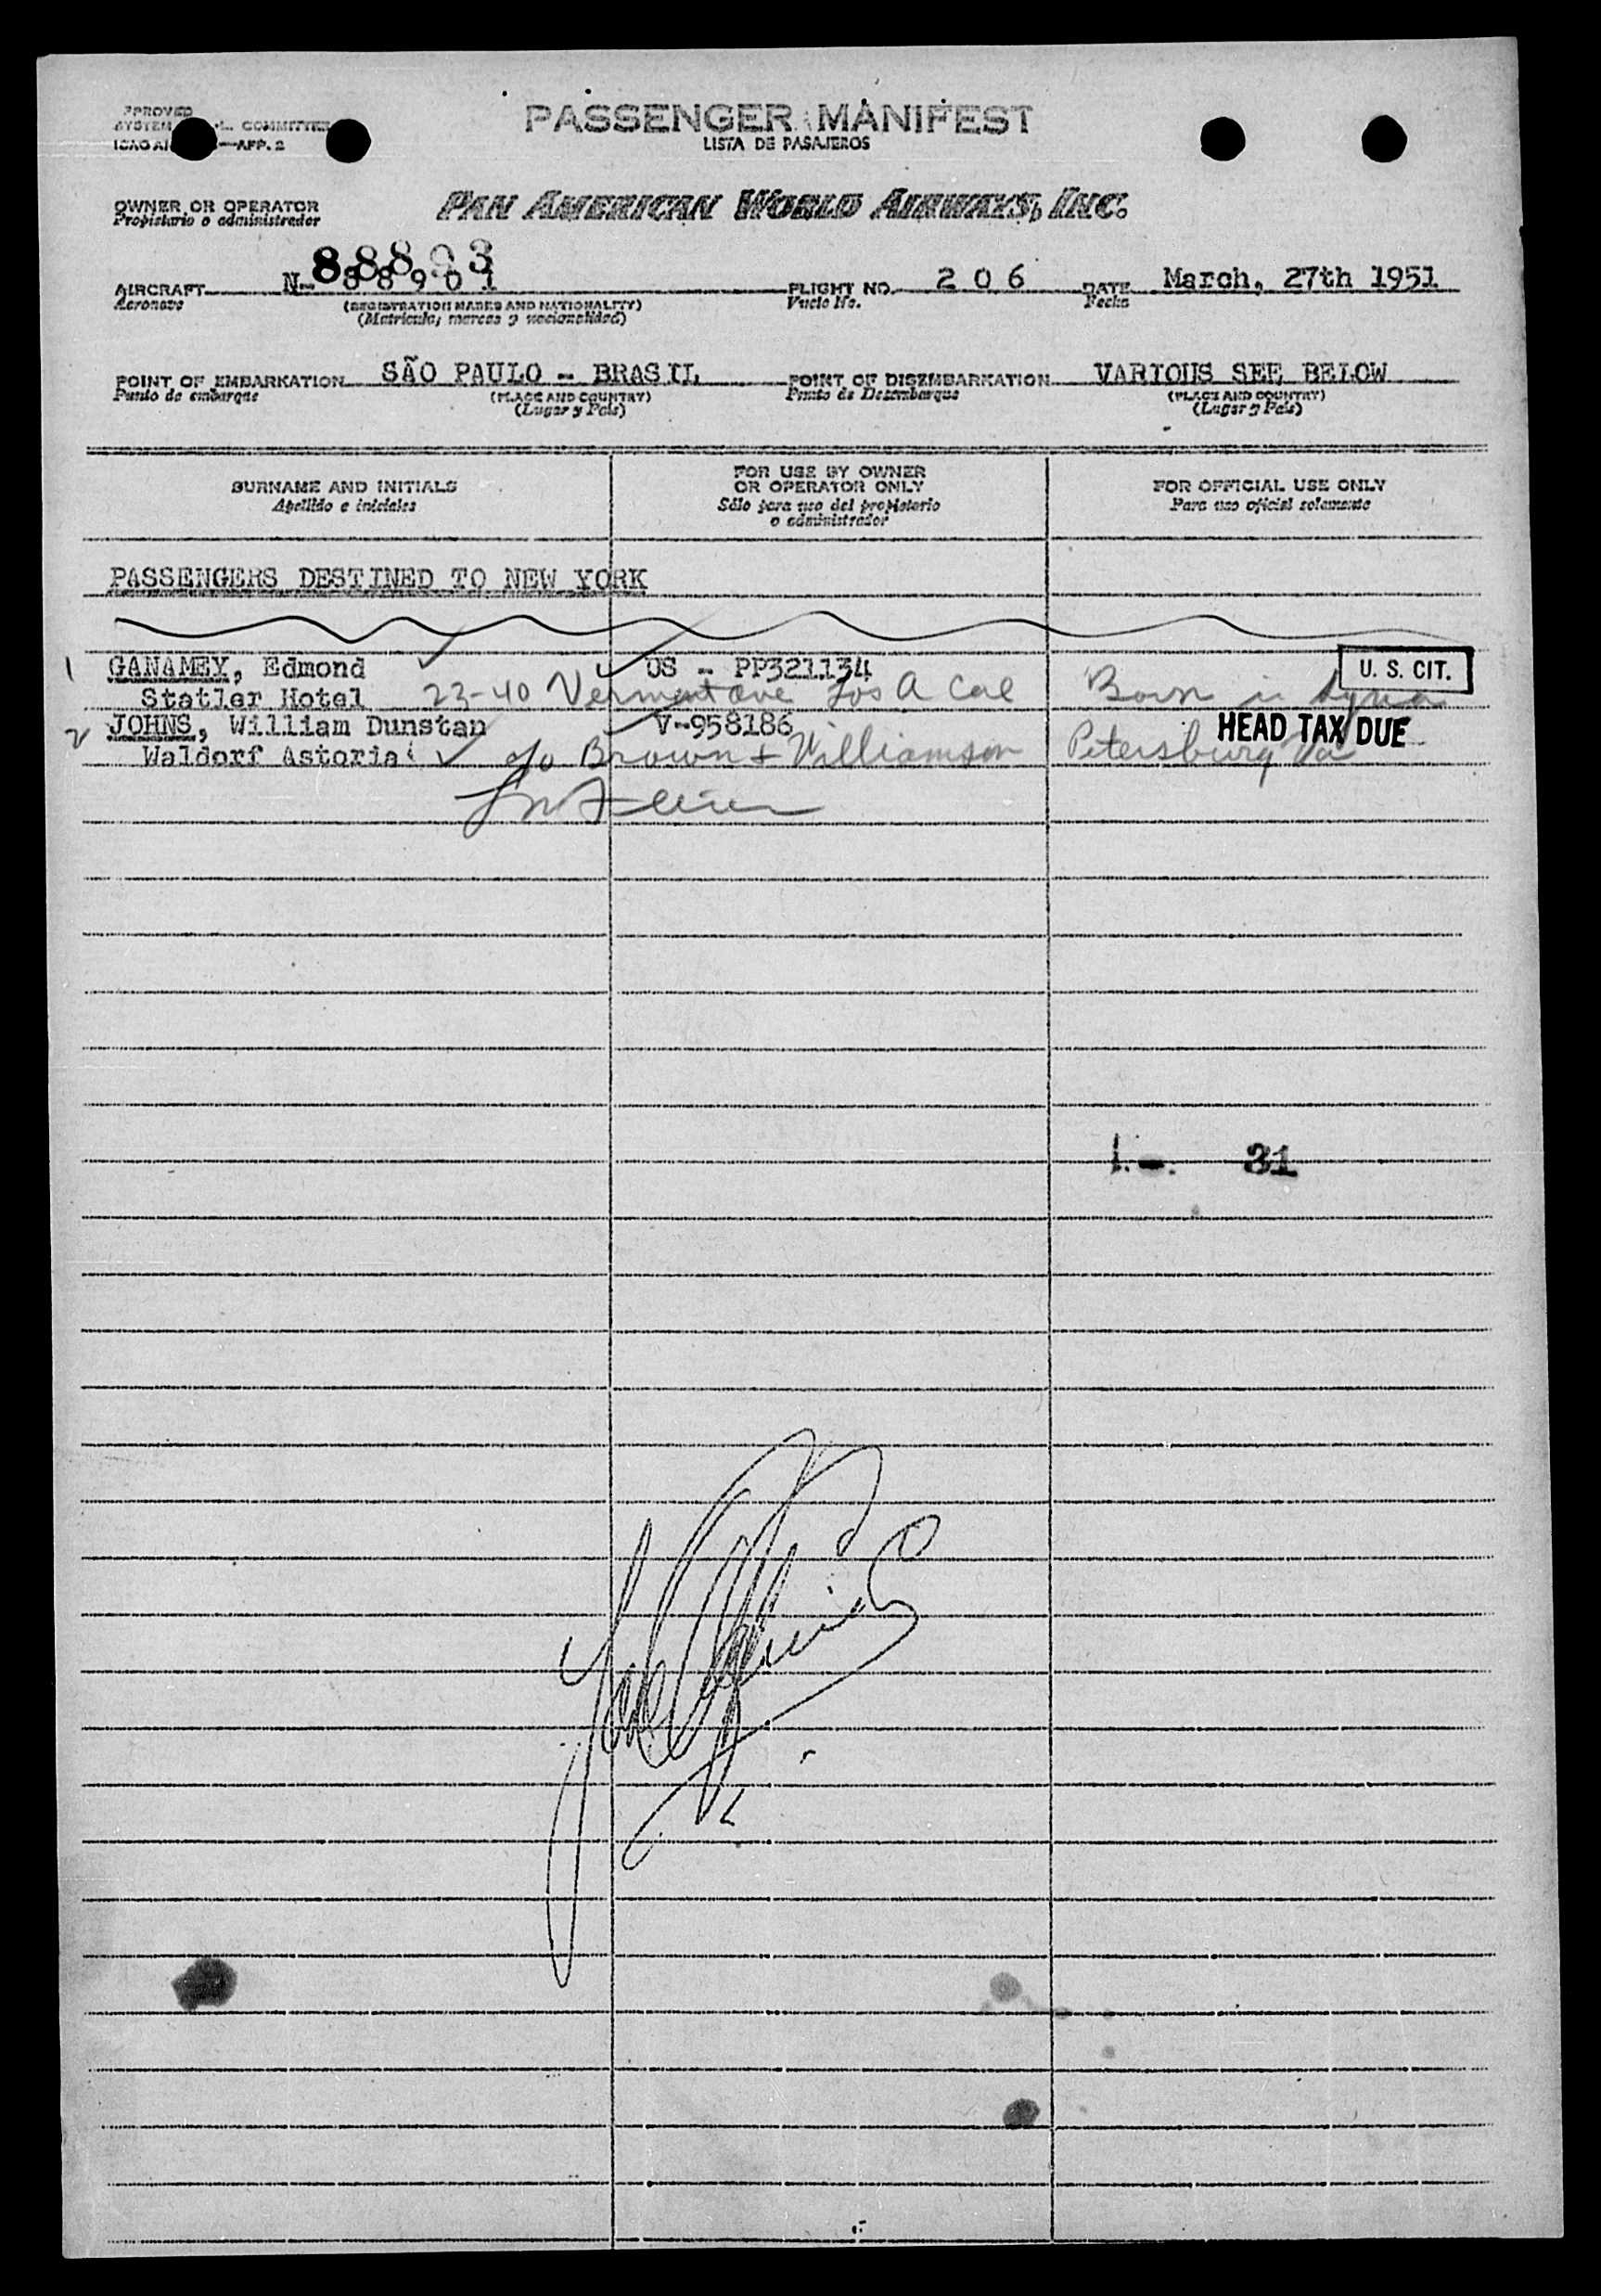 PASSENGER MANIFEST
LISTA DE PASAJEROS
APP. 2
OWNER OR OPERATOR
Propietario o administrador
PAN AMERICAN WORLD AIRWAYS, INC.
88893
AIRCRAFT N-88901 FLIGHT NO. 206 DATE March, 27th 1951
Aeronave (REGISTRATION MARKS AND NATIONALITY) Vuelo No. Fecha
(Matrícula, marcas y nacionalidad)
POINT OF EMBARKATION SÃO PAULO - BRASIL POINT OF DISEMBARKATION VARIOUS SEE BELOW
Punto de embarque (PLACE AND COUNTRY) Punto de Desembarque (PLACE AND COUNTRY)
(Lugar y País) (Lugar y País)
SURNAME AND INITIALS FOR USE BY OWNER OR OPERATOR ONLY FOR OFFICIAL USE ONLY
Apellido e iniciales Sólo para uso del propietario o administrador Para uso oficial solamente
PASSENGERS DESTINED TO NEW YORK
1 GANAMEY, Edmond US - PP321134 U. S. CIT.
Statler Hotel 23-40 Vermont Ave Los A Cal Born in Syria
2 JOHNS, William Dunstan V-958186 HEAD TAX DUE
Waldorf Astoria c/o Brown + Williamson Petersburg Va
1.-. 31